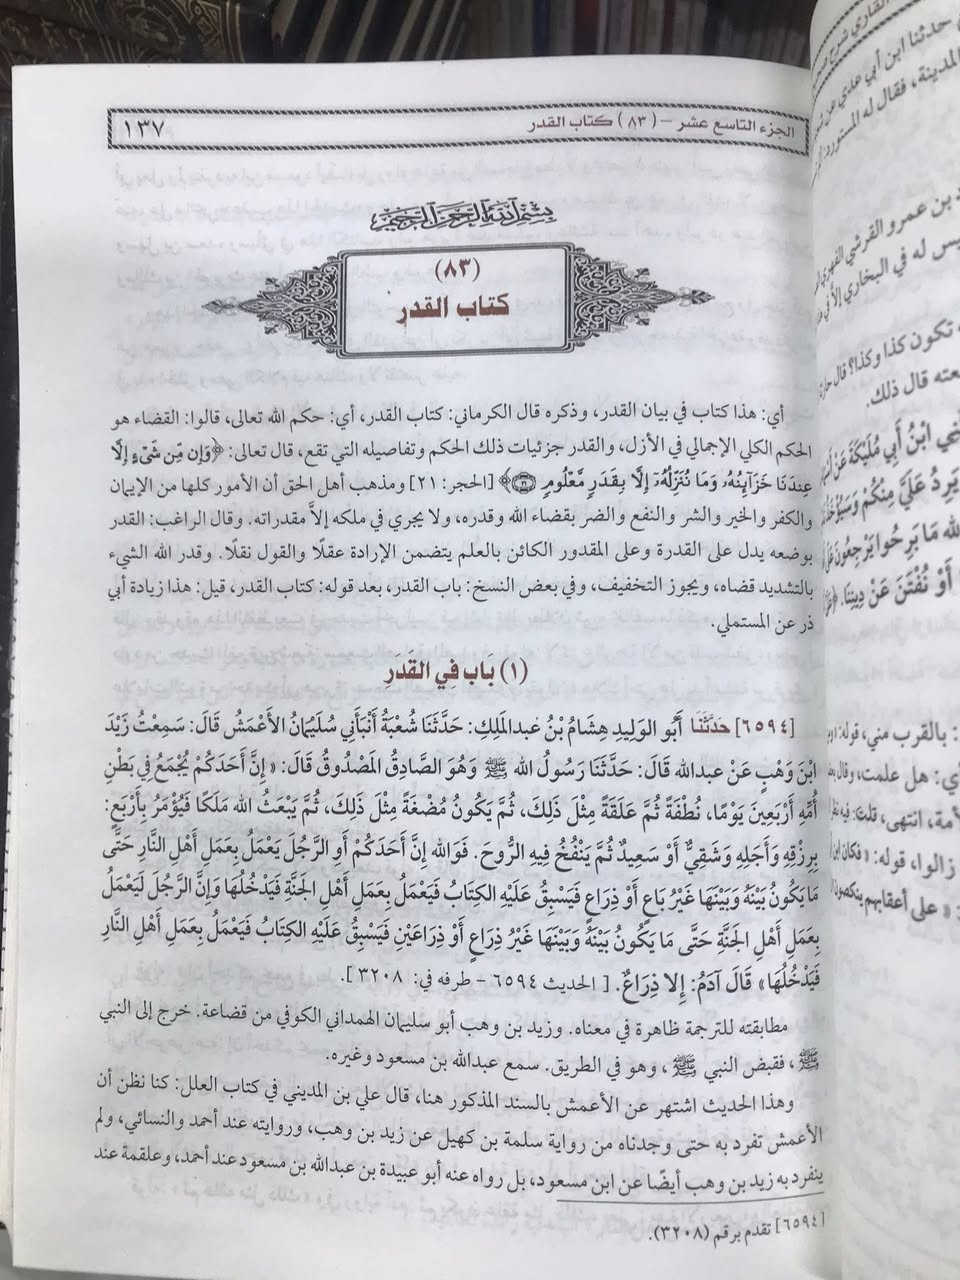 الجزء التاسع عشر - (٨٣) كتاب القدر
١٣٧
بسم الله الرحمن الرحيم
(٨٣)
كتاب القدر
أي: هذا كتاب في بيان القدر، وذكره قال الكرماني: كتاب القدر، أي: حكم الله تعالى، قالوا: القضاء هو
الحكم الكلي الإجمالي في الأزل، والقدر جزئيات ذلك الحكم وتفاصيله التي تقع، قال تعالى: ﴿وَإِن مِّن شَيْءٍ إِلَّا
عِندَنَا خَزَائِنُهُ وَمَا نُنَزِّلُهُ إِلَّا بِقَدَرٍ مَّعْلُومٍ ٢١﴾ [الحجر: ٢١] ومذهب أهل الحق أن الأمور كلها من الإيمان
والكفر والخير والشر والنفع والضر بقضاء الله وقدره، ولا يجري في ملكه إلاَّ مقدراته. وقال الراغب: القدر
بوضعه يدل على القدرة وعلى المقدور الكائن بالعلم يتضمن الإرادة عقلًا والقول نقلًا. وقدر الله الشيء
بالتشديد قضاه، ويجوز التخفيف، وفي بعض النسخ: باب القدر، بعد قوله: كتاب القدر، قيل: هذا زيادة أبي
ذر عن المستملي.
(١) بَاب فِي القدر
[٦٥٩٤] حَدَّثَنَا أَبُو الوَلِيدِ هِشَامُ بْنُ عبدالملِكِ: حَدَّثَنَا شُعْبَةُ أَنْبَأَنِي سُلَيْمَانُ الأَعْمَشُ قَالَ: سَمِعْتُ زَيْدَ
ابْنَ وَهْبٍ عَنْ عبدالله قَالَ: حَدَّثَنَا رَسُولُ الله ﷺ وَهُوَ الصَّادِقُ المَصْدُوقُ قَالَ: «إِنَّ أَحَدَكُمْ يُجْمَعُ فِي بَطْنِ
أُمِّهِ أَرْبَعِينَ يَوْمًا، نُطْفَةً ثُمَّ عَلَقَةً مِثْلَ ذَلِكَ، ثُمَّ يَكُونُ مُضْغَةً مِثْلَ ذَلِكَ، ثُمَّ يَبْعَثُ الله مَلَكًا فَيُؤْمَرُ بِأَرْبَعٍ:
بِرِزْقِهِ وَأَجَلِهِ وَشَقِيٌّ أَوْ سَعِيدٌ ثُمَّ يَنْفُخُ فِيهِ الرُّوحَ. فَوَالله إِنَّ أَحَدَكُمْ أَوِ الرَّجُلَ يَعْمَلُ بِعَمَلِ أَهْلِ النَّارِ حَتَّى
مَا يَكُونُ بَيْنَهُ وَبَيْنَهَا غَيْرُ بَاعٍ أَوْ ذِرَاعٍ فَيَسْبِقُ عَلَيْهِ الكِتَابُ فَيَعْمَلُ بِعَمَلِ أَهْلِ الجَنَّةِ فَيَدْخُلُهَا وَإِنَّ الرَّجُلَ لَيَعْمَلُ
بِعَمَلِ أَهْلِ الجَنَّةِ حَتَّى مَا يَكُونُ بَيْنَهُ وَبَيْنَهَا غَيْرُ ذِرَاعٍ أَوْ ذِرَاعَيْنِ فَيَسْبِقُ عَلَيْهِ الكِتَابُ فَيَعْمَلُ بِعَمَلِ أَهْلِ النَّارِ
فَيَدْخُلُهَا» قَالَ آدَمُ: إِلا ذِرَاعٌ. [الحديث ٦٥٩٤ - طرفه في: ٣٢٠٨].
مطابقته للترجمة ظاهرة في معناه. وزيد بن وهب أبو سليمان الهمداني الكوفي من قضاعة. خرج إلى النبي
ﷺ، فقبض النبي ﷺ، وهو في الطريق. سمع عبدالله بن مسعود وغيره.
وهذا الحديث اشتهر عن الأعمش بالسند المذكور هنا، قال علي بن المديني في كتاب العلل: كنا نظن أن
الأعمش تفرد به حتى وجدناه من رواية سلمة بن كهيل عن زيد بن وهب، وروايته عند أحمد والنسائي، ولم
ينفرد به زيد بن وهب أيضًا عن ابن مسعود، بل رواه عنه أبو عبيدة بن عبدالله بن مسعود عند أحمد، وعلقمة عند
[٦٥٩٤] تقدم برقم (٣٢٠٨).
القاري شرح
حدثنا ابن أبي عدي عن
المدينة، فقال له المستورد:
بن عمرو القرشي الفهري
ليس له في البخاري إلاَّ في
تكون كذا وكذا؟ قال
قال ذلك.
ابْنُ أَبِي مُلَيْكَةَ عَنْ
يَرِدُ عَلَيَّ مِنْكُمْ
مَا بَرِحُوا يَرْجِعُونَ
أَوْ نُفْتَنَ عَنْ دِينِنَا.
بالقرب مني، قوله:
أي: هل علمت، وقال
انتهى، قلت: فيه
زالوا، قوله: «فكان ابن
«على أعقابهم ينكصون